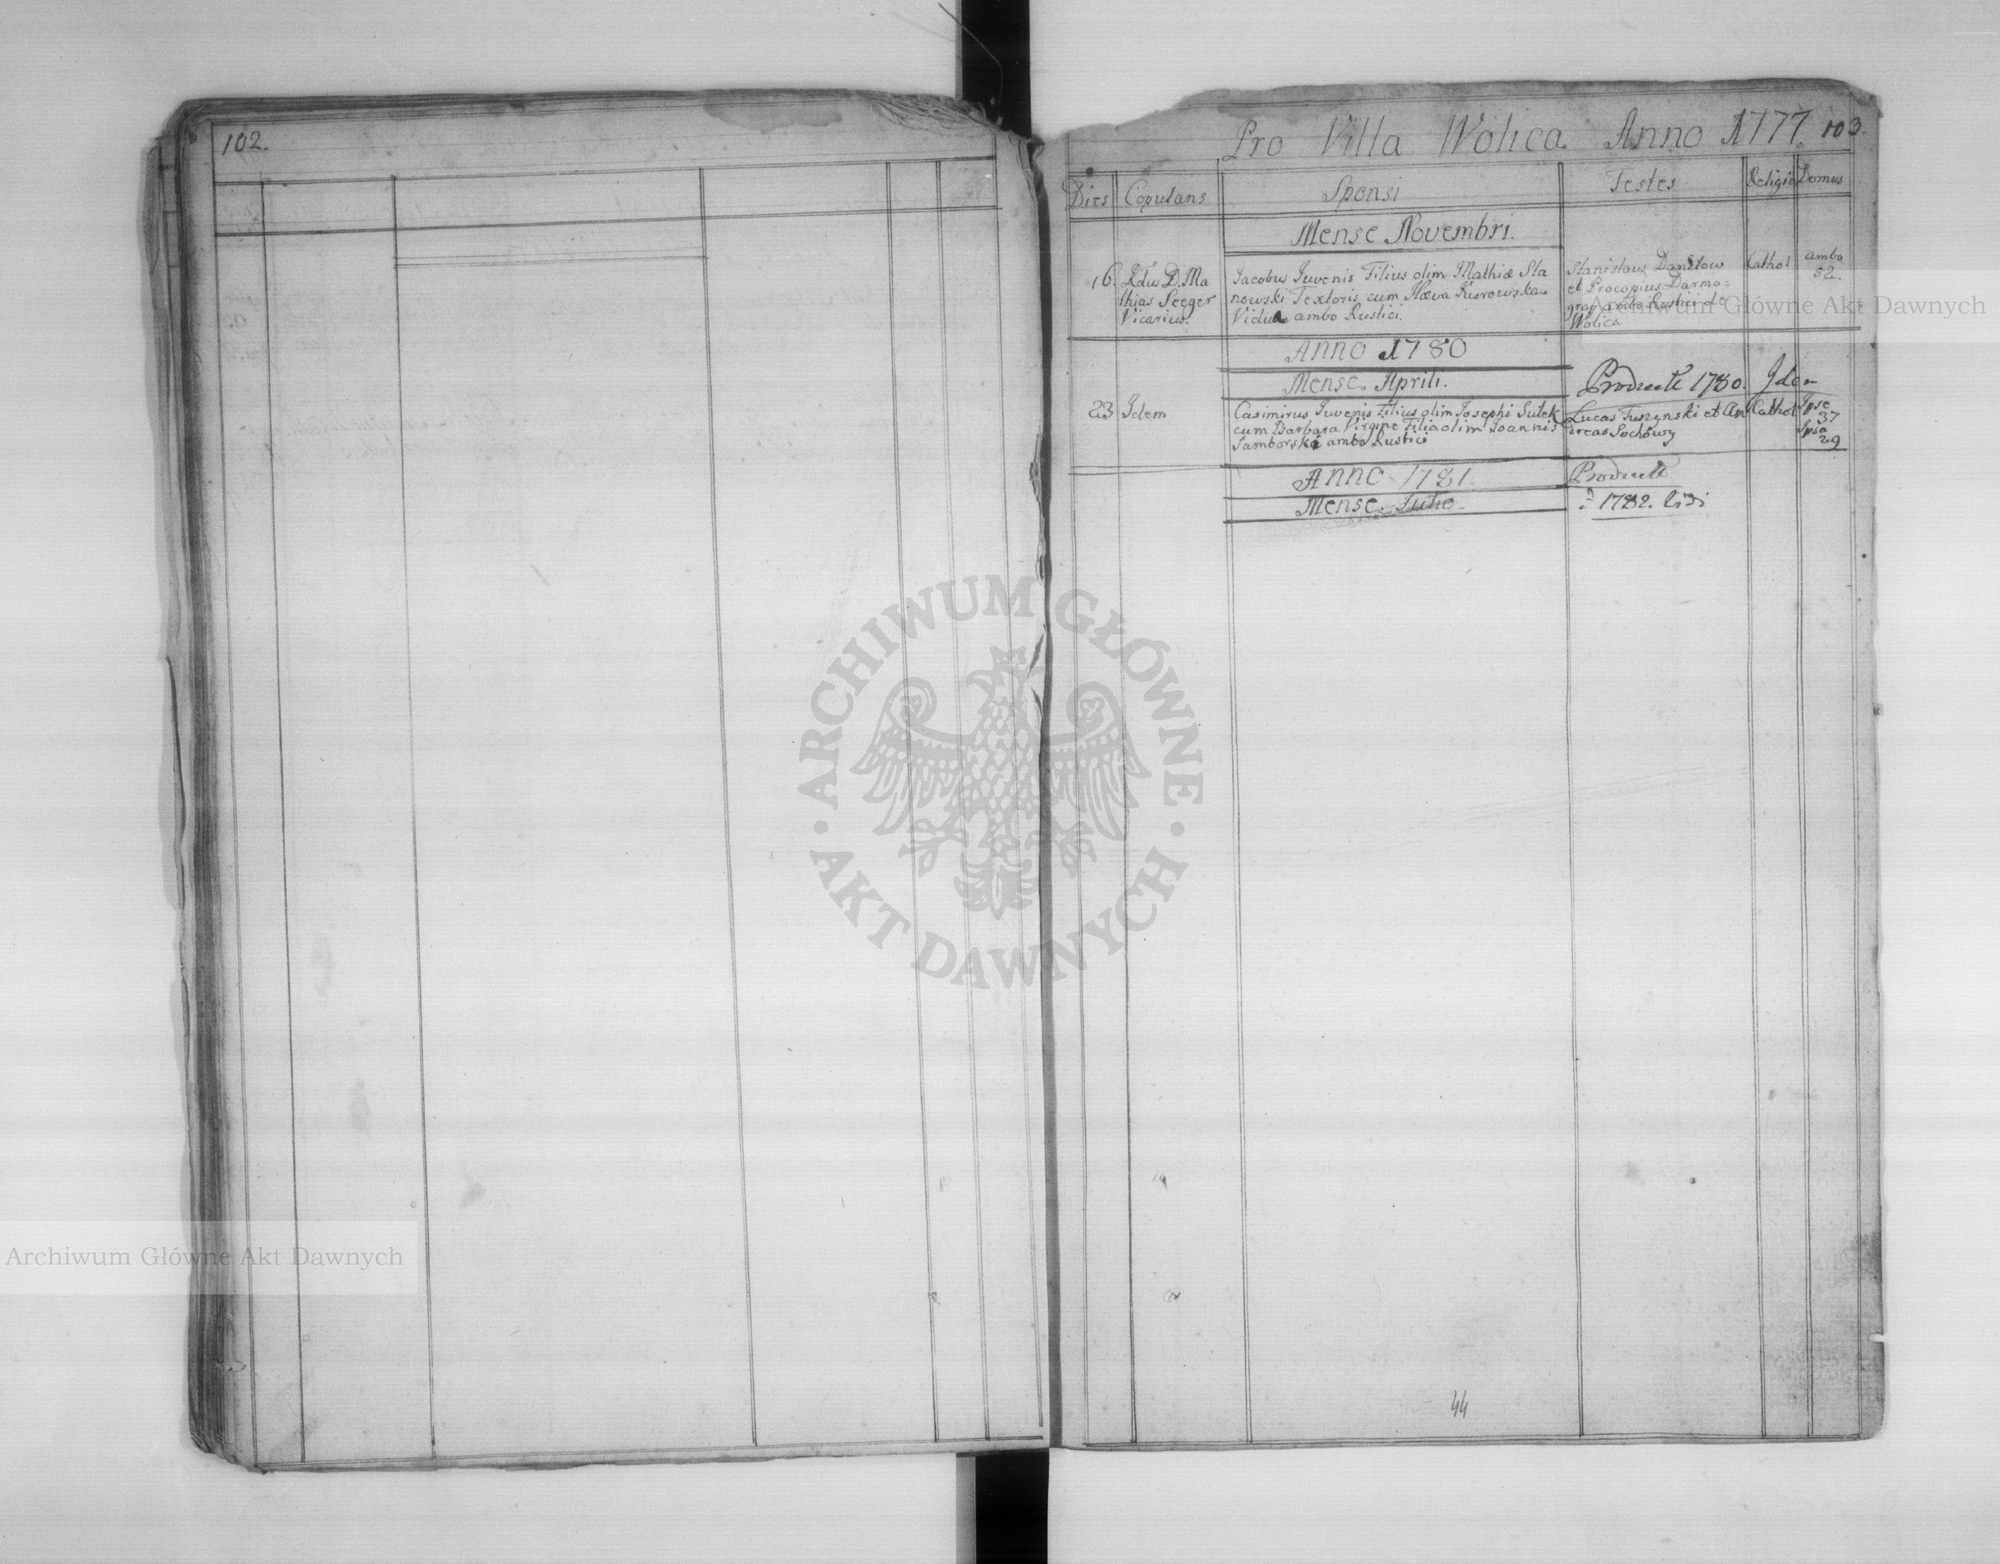 102.
Pro Villa Wolica Anno 1777. 103.
Dies Copulans Sponsi Testes Religio Domus
Mense Novembri.
16. Rdus D. Ma
thias Seeger
Vicarius.
Jacobus Juvenis Filius olim Mathiæ Sta
nowski Textoris cum
Vidua ambo Rustici.
Stanislaus Daniłow
et Procopius Darmo=
graj ambo Rustici de
Wolica
Cathol
ambo
52.
Anno 1780
Mense Aprili.
Producte 1780. Idem
23 Idem
Casimirus Juvenis Filius olim Josephi Sulek
cum Barbara Virgine Filia olim Joannis
Samborski ambo Rustici
Lucas Tuszynski et An
dreas Sochowy
Cathol
Ipse
37
Ipsa
29
Anno 1781.
Mense Julio.
Producte
1782.
44
ARCHIWUM GŁÓWNE
AKT DAWNYCH
Archiwum Główne Akt Dawnych
Archiwum Główne Akt Dawnych